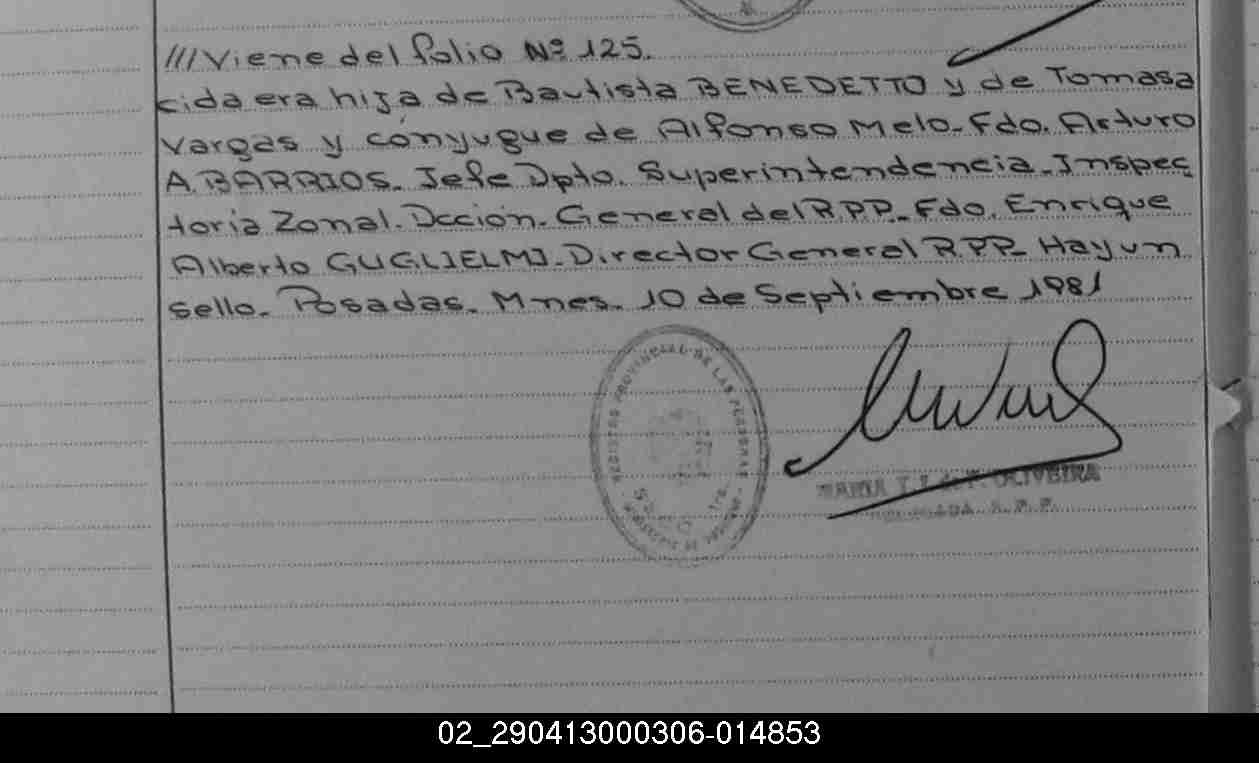 ///Viene del folio Nº 125.
cida era hija de Bautista BENEDETTO y de Tomasa
Vargas y cónyugue de Alfonso Melo. Fdo. Arturo
A. BARRIOS. Jefe Dpto. Superintendencia. Inspec
toria Zonal. Dccion. General del R.P.P. Fdo. Enrique
Alberto GUGLIELMI. Director General R.P.P. Hay un
sello. Posadas. Mnes. 10 de Septiembre 1981
REGISTRO PROVINCIAL DE LAS PERSONAS
MARIA T. OLIVEIRA
R. P. P.
02_290413000306-014853